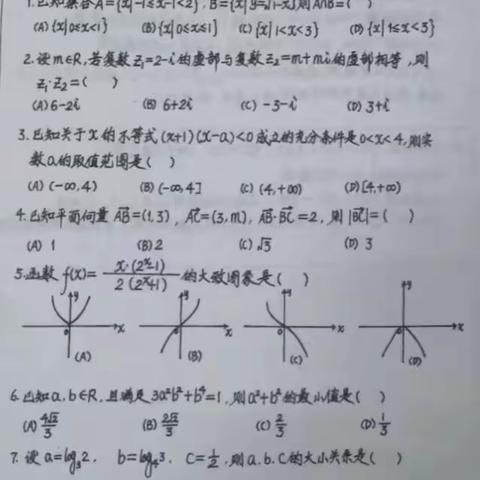 1.已知集合A={x|-1≤x-1<2}, B={x|y=√1-x}则A∩B=( )
(A){x|0≤x<1} (B){x|0≤x≤1} (C){x|1<x<3} (D){x|1≤x<3}
2.设m∈R,若复数z₁=2-i的虚部与复数z₂=m+mi的虚部相等,则
z₁·z₂=( )
(A)6-2i (B)6+2i (C)-3-i (D)3+i
3.已知关于x的不等式(x+1)(x-a)<0成立的充分条件是0<x<4,则实
数a的取值范围是( )
(A)(-∞,4) (B)(-∞,4] (C)(4,+∞) (D)[4,+∞)
4.已知平面向量AB=(1,3),AC=(3,m),AB·BC=2,则|BC|=( )
(A)1 (B)2 (C)√3 (D)3
5.函数f(x)=x·(2ˣ-1)/2(2ˣ+1)的大致图象是( )
y y y y
0 x 0 x 0 x 0 x
(A) (B) (C) (D)
6.已知a,b∈R,且满足3a²b²+b⁴=1,则a²+b²的最小值是( )
(A)4√2/3 (B)2√2/3 (C)2/3 (D)1/3
7.设a=log₃2, b=log₄3, C=1/2,则a.b.C的大小关系是( )